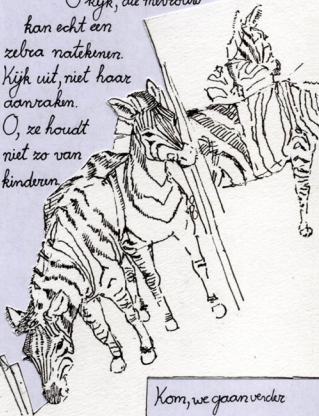 O kijk, die mevrouw
kan echt een
zebra natekenen.
Kijk uit, niet haar
aanraken.
O, ze houdt
niet zo van
kinderen
Kom, we gaan verder